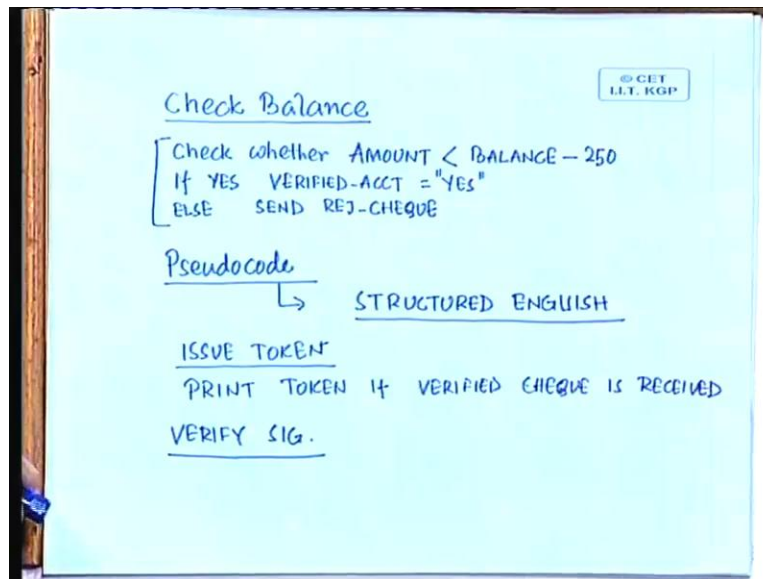 © CET
I.I.T. KGP
Check Balance
Check whether AMOUNT < BALANCE - 250
If YES VERIFIED-ACCT = "YES"
ELSE SEND REJ-CHEQUE
Pseudocode
↳ STRUCTURED ENGLISH
ISSUE TOKEN
PRINT TOKEN If VERIFIED CHEQUE IS RECEIVED
VERIFY SIG.